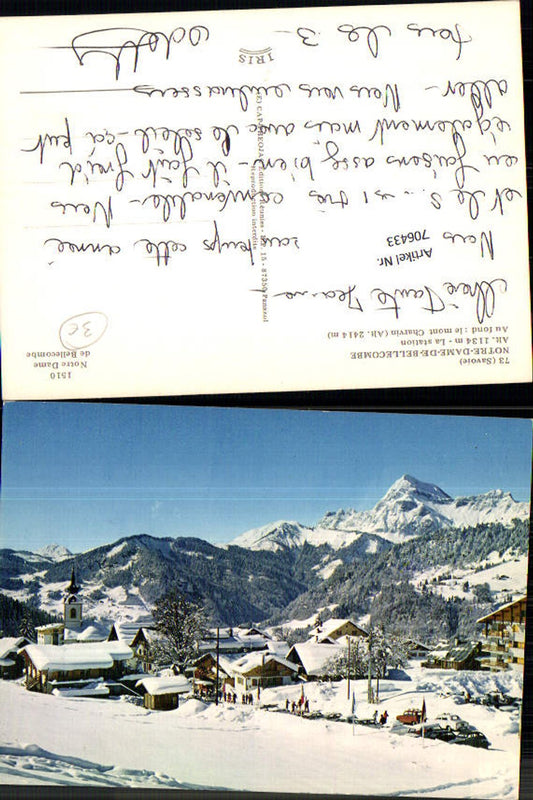 73 (Savoie)
NOTRE-DAME-DE-BELLECOMBE
Alt. 1134 m - La station
Au fond : le mont Charvin (Alt. 2414 m)
1510
Notre Dame
de Bellecombe
3€
Chère Tante
Artikel Nr.
706433
Nous
temps cette année
et le S... est très convenable - Nous
en faisons assez bien - il fait froid
également mais avec le soleil - ça peut
aller - Nous vous embrassons
tous les 3 -
IRIS
Reproduction interdite